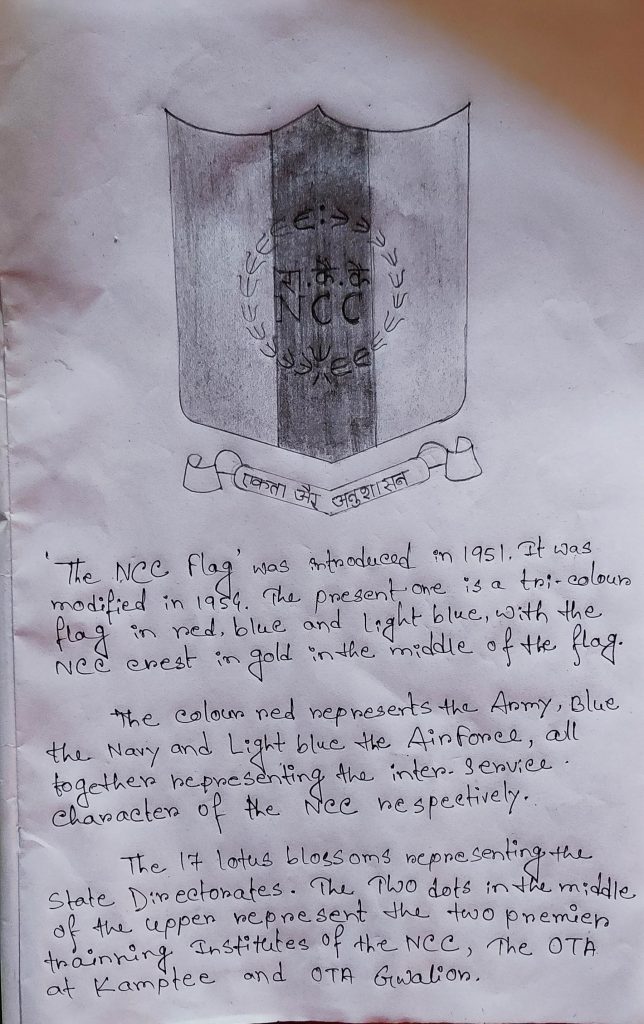 रा.कै.कै
NCC
एकता और अनुशासन
'The NCC Flag' was introduced in 1951. It was
modified in 1954. The present one is a tri-colour
flag in red, blue and light blue, with the
NCC crest in gold in the middle of the flag.
The colour red represents the Army, Blue
the Navy and Light blue the Airforce, all
together representing the inter-Service
character of the NCC respectively.
The 17 lotus blossoms representing the
State Directorates. The Two dots in the middle
of the upper represent the two premier
trainning Institutes of the NCC, The OTA
at Kamptee and OTA Gwalior.